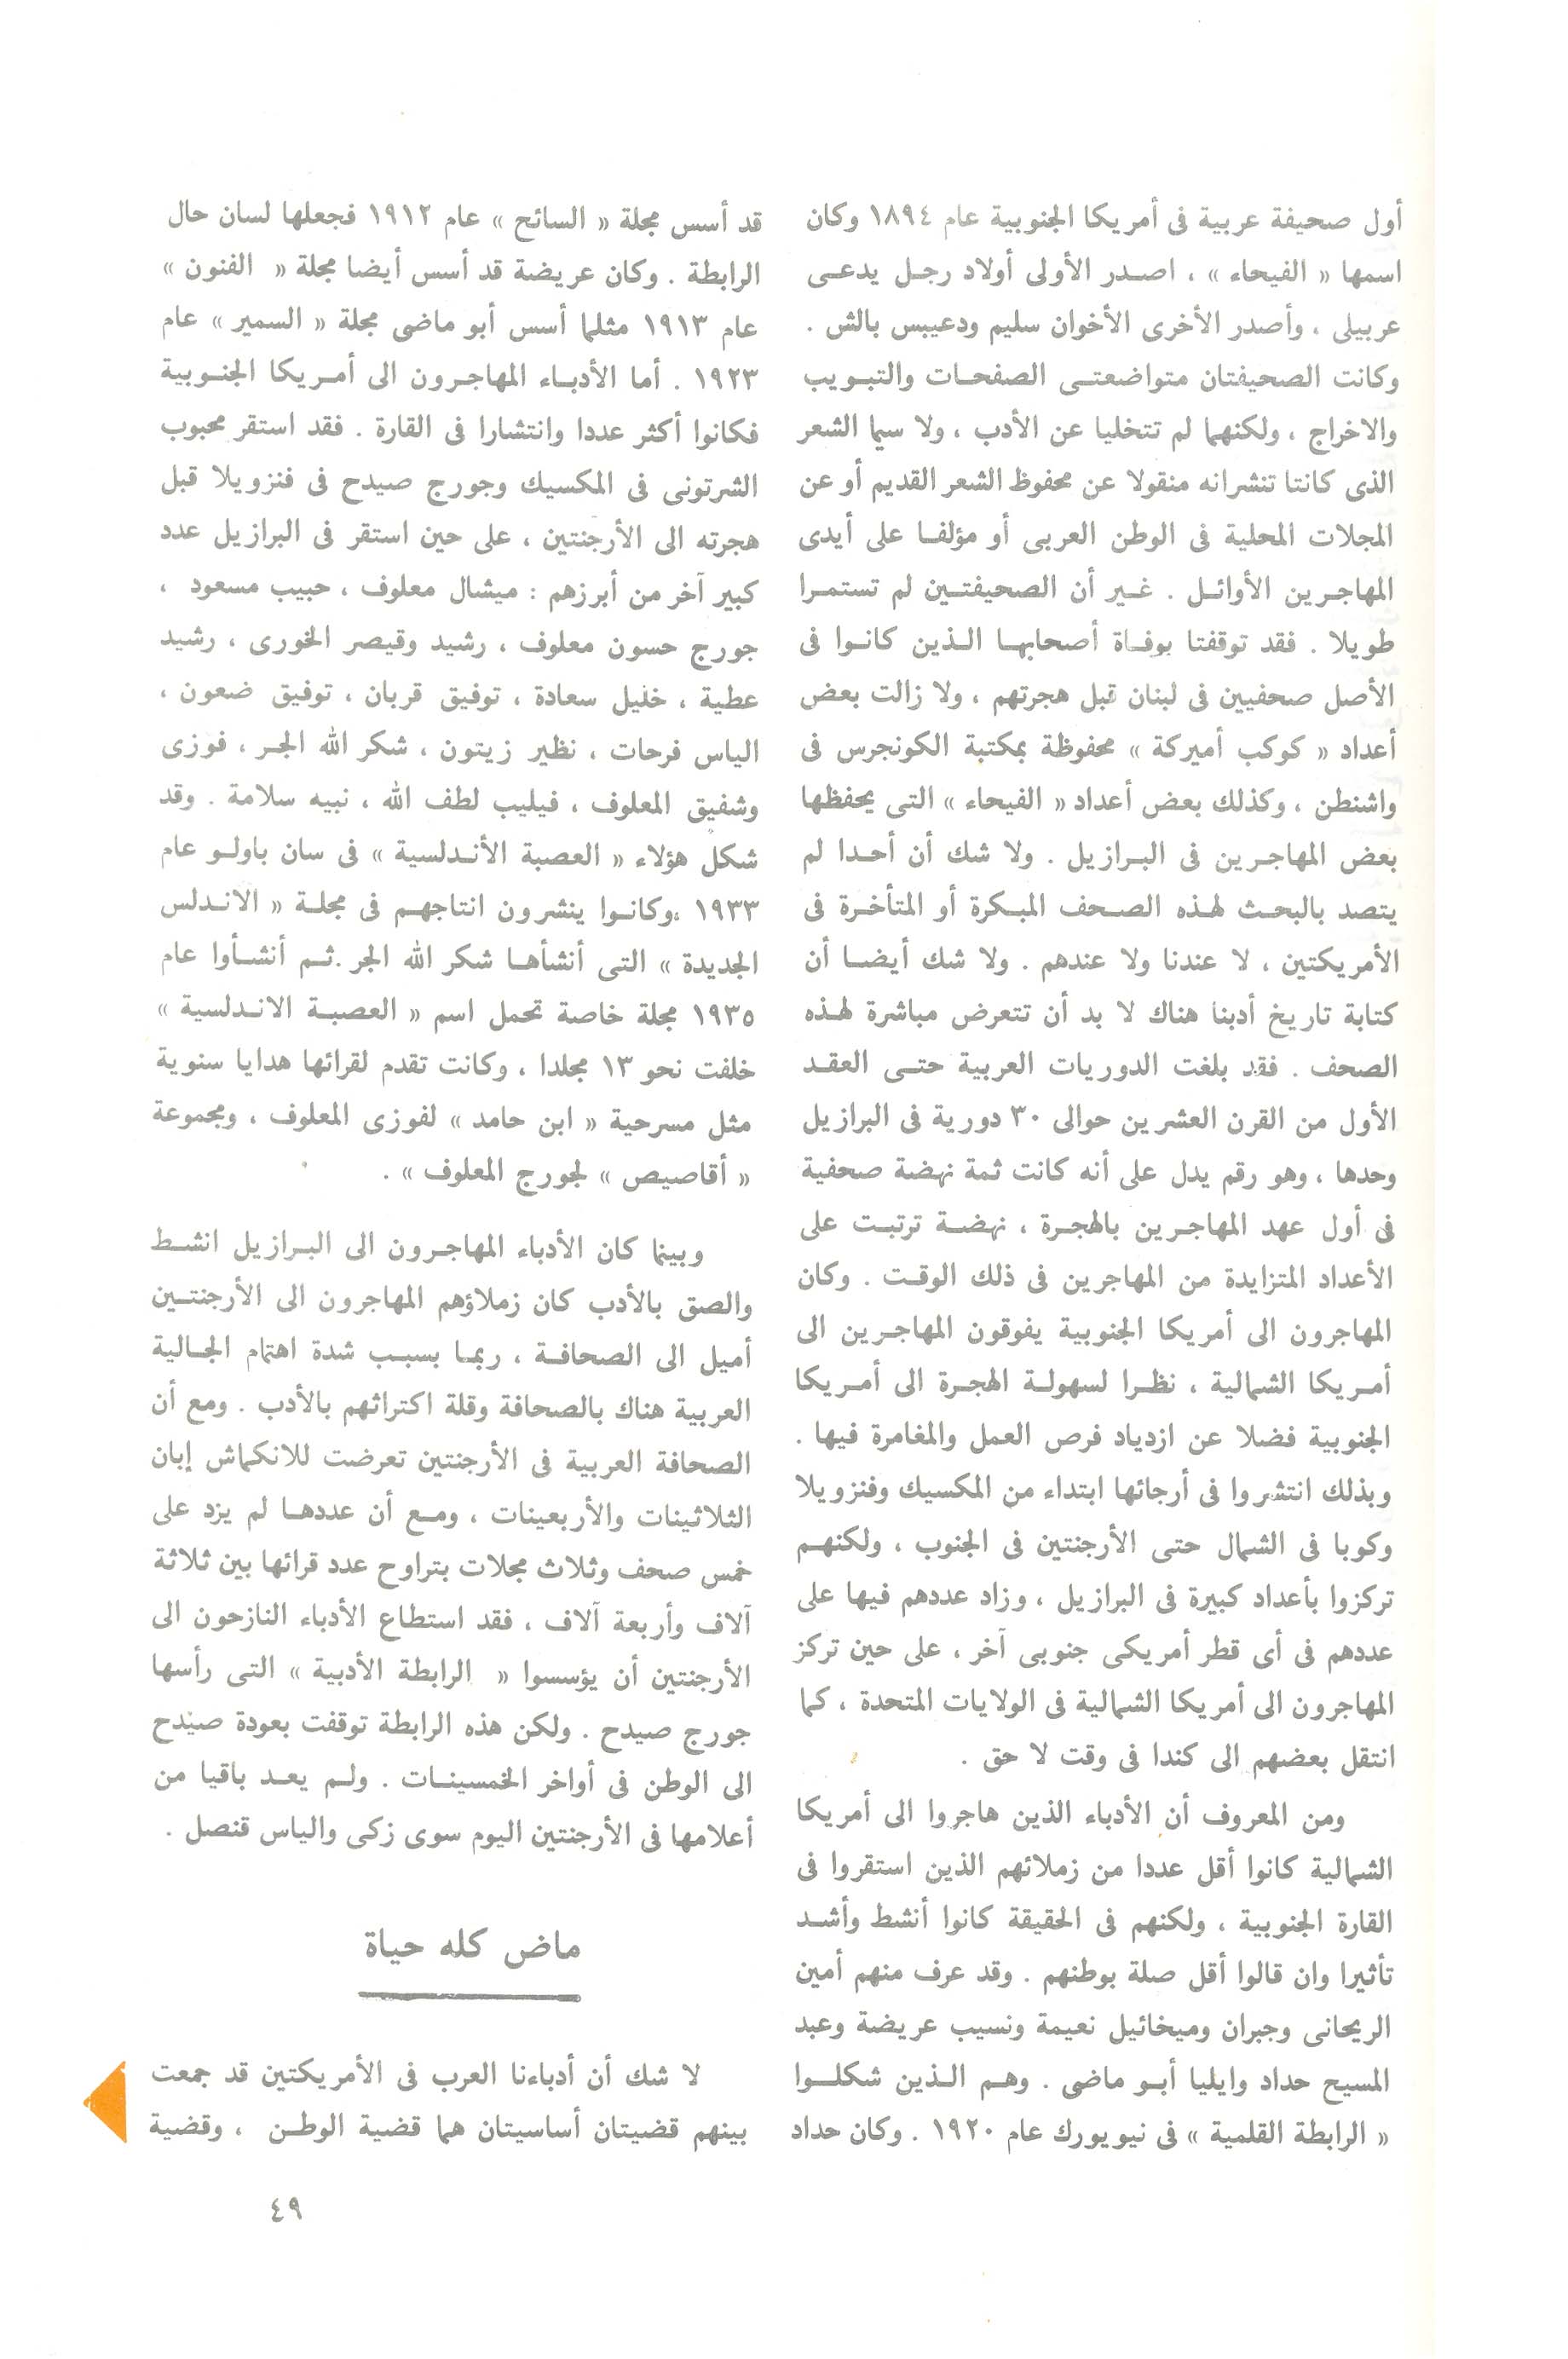 أول صحيفة عربية فى أمريكا الجنوبية عام ١٨٩٤ وكان
اسمها « الفيحاء » ، اصدر الأولى أولاد رجل يدعى
عربيلى ، وأصدر الأخرى الأخوان سليم ودعيبس بالش .
وكانت الصحيفتان متواضعتى الصفحات والتبويب
والاخراج ، ولكنهما لم تتخليا عن الأدب ، ولا سيما الشعر
الذى كانتا تنشرانه منقولا عن محفوظ الشعر القديم أو عن
المجلات المحلية فى الوطن العربى أو مؤلفا على أيدى
المهاجرين الأوائل . غير أن الصحيفتين لم تستمرا
طويلا . فقد توقفتا بوفاة أصحابها الذين كانوا فى
الأصل صحفيين فى لبنان قبل هجرتهم ، ولا زالت بعض
أعداد « كوكب أميركة » محفوظة بمكتبة الكونجرس فى
واشنطن ، وكذلك بعض أعداد « الفيحاء » التى يحفظها
بعض المهاجرين فى البرازيل . ولا شك أن أحدا لم
يتصد بالبحث لهذه الصحف المبكرة أو المتأخرة فى
الأمريكتين ، لا عندنا ولا عندهم . ولا شك أيضا أن
كتابة تاريخ أدبنا هناك لا بد أن تتعرض مباشرة لهذه
الصحف . فقد بلغت الدوريات العربية حتى العقد
الأول من القرن العشرين حوالى ٣٠ دورية فى البرازيل
وحدها ، وهو رقم يدل على أنه كانت ثمة نهضة صحفية
فى أول عهد المهاجرين بالهجرة ، نهضة ترتبت على
الأعداد المتزايدة من المهاجرين فى ذلك الوقت . وكان
المهاجرون الى أمريكا الجنوبية يفوقون المهاجرين الى
أمريكا الشمالية ، نظرا لسهولة الهجرة الى أمريكا
الجنوبية فضلا عن ازدياد فرص العمل والمغامرة فيها .
وبذلك انتشروا فى أرجائها ابتداء من المكسيك وفنزويلا
وكوبا فى الشمال حتى الأرجنتين فى الجنوب ، ولكنهم
تركزوا بأعداد كبيرة فى البرازيل ، وزاد عددهم فيها على
عددهم فى أى قطر أمريكى جنوبى آخر ، على حين تركز
المهاجرون الى أمريكا الشمالية فى الولايات المتحدة ، كما
انتقل بعضهم الى كندا فى وقت لا حق .
ومن المعروف أن الأدباء الذين هاجروا الى أمريكا
الشمالية كانوا أقل عددا من زملائهم الذين استقروا فى
القارة الجنوبية ، ولكنهم فى الحقيقة كانوا أنشط وأشد
تأثيرا وان قالوا أقل صلة بوطنهم . وقد عرف منهم أمين
الريحانى وجبران وميخائيل نعيمة ونسيب عريضة وعبد
المسيح حداد وايليا أبو ماضى . وهم الذين شكلوا
« الرابطة القلمية » فى نيويورك عام ١٩٢٠ . وكان حداد
قد أسس مجلة « السائح » عام ١٩١٢ فجعلها لسان حال
الرابطة . وكان عريضة قد أسس أيضا مجلة « الفنون »
عام ١٩١٣ مثلما أسس أبو ماضى مجلة « السمير » عام
١٩٢٣ . أما الأدباء المهاجرون الى أمريكا الجنوبية
فكانوا أكثر عددا وانتشارا فى القارة . فقد استقر محبوب
الشرتونى فى المكسيك وجورج صيدح فى فنزويلا قبل
هجرته الى الأرجنتين ، على حين استقر فى البرازيل عدد
كبير آخر من أبرزهم : ميشال معلوف ، حبيب مسعود ،
جورج حسون معلوف ، رشيد وقيصر الخورى ، رشيد
عطية ، خليل سعادة ، توفيق قربان ، توفيق ضعون ،
الياس فرحات ، نظير زيتون ، شكر الله الجر ، فوزى
وشفيق المعلوف ، فيليب لطف الله ، نبيه سلامة . وقد
شكل هؤلاء « العصبة الأندلسية » فى سان باولو عام
١٩٣٣ ، وكانوا ينشرون انتاجهم فى مجلة « الاندلس
الجديدة » التى أنشأها شكر الله الجر . ثم أنشأوا عام
١٩٣٥ مجلة خاصة تحمل اسم « العصبة الاندلسية »
خلفت نحو ١٣ مجلدا ، وكانت تقدم لقرائها هدايا سنوية
مثل مسرحية « ابن حامد » لفوزى المعلوف ، ومجموعة
« أقاصيص » لجورج المعلوف » .
وبينما كان الأدباء المهاجرون الى البرازيل انشط
والصق بالأدب كان زملاؤهم المهاجرون الى الأرجنتين
أميل الى الصحافة ، ربما بسبب شدة اهتمام الجالية
العربية هناك بالصحافة وقلة اكتراثهم بالأدب . ومع أن
الصحافة العربية فى الأرجنتين تعرضت للانكماش إبان
الثلاثينات والأربعينات ، ومع أن عددها لم يزد على
خمس صحف وثلاث مجلات بتراوح عدد قرائها بين ثلاثة
آلاف وأربعة آلاف ، فقد استطاع الأدباء النازحون الى
الأرجنتين أن يؤسسوا « الرابطة الأدبية » التى رأسها
جورج صيدح . ولكن هذه الرابطة توقفت بعودة صيدح
الى الوطن فى أواخر الخمسينات . ولم يعد باقيا من
أعلامها فى الأرجنتين اليوم سوى زكى والياس قنصل .
ماض كله حياة
لا شك أن أدباءنا العرب فى الأمريكتين قد جمعت
بينهم قضيتان أساسيتان هما قضية الوطن ، وقضية
٤٩